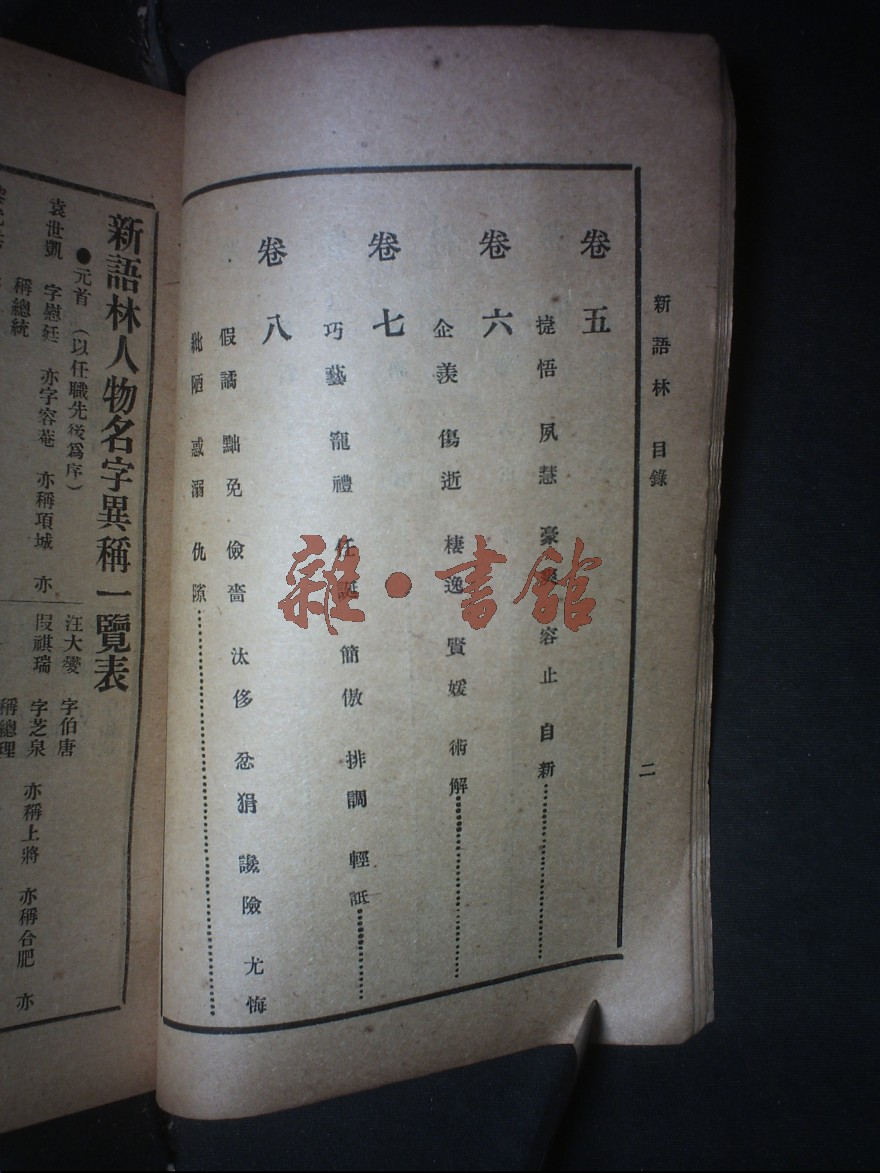 新語林 目錄 二
卷五
捷悟 夙慧 豪爽 容止 自新
卷六
企羨 傷逝 棲逸 賢媛 術解
卷七
巧藝 寵禮 任誕 簡傲 排調 輕詆
卷八
假譎 黜免 儉嗇 汰侈 忿狷 讒險 尤悔
紕陋 惑溺 仇隙
雜·書館
新語林人物名字異稱一覽表
●元首 (以任職先後爲序)
袁世凱 字慰廷 亦字容菴 亦稱項城 亦
稱總統
汪大燮 字伯唐
段祺瑞 字芝泉 亦稱上將 亦稱合肥 亦
稱總理